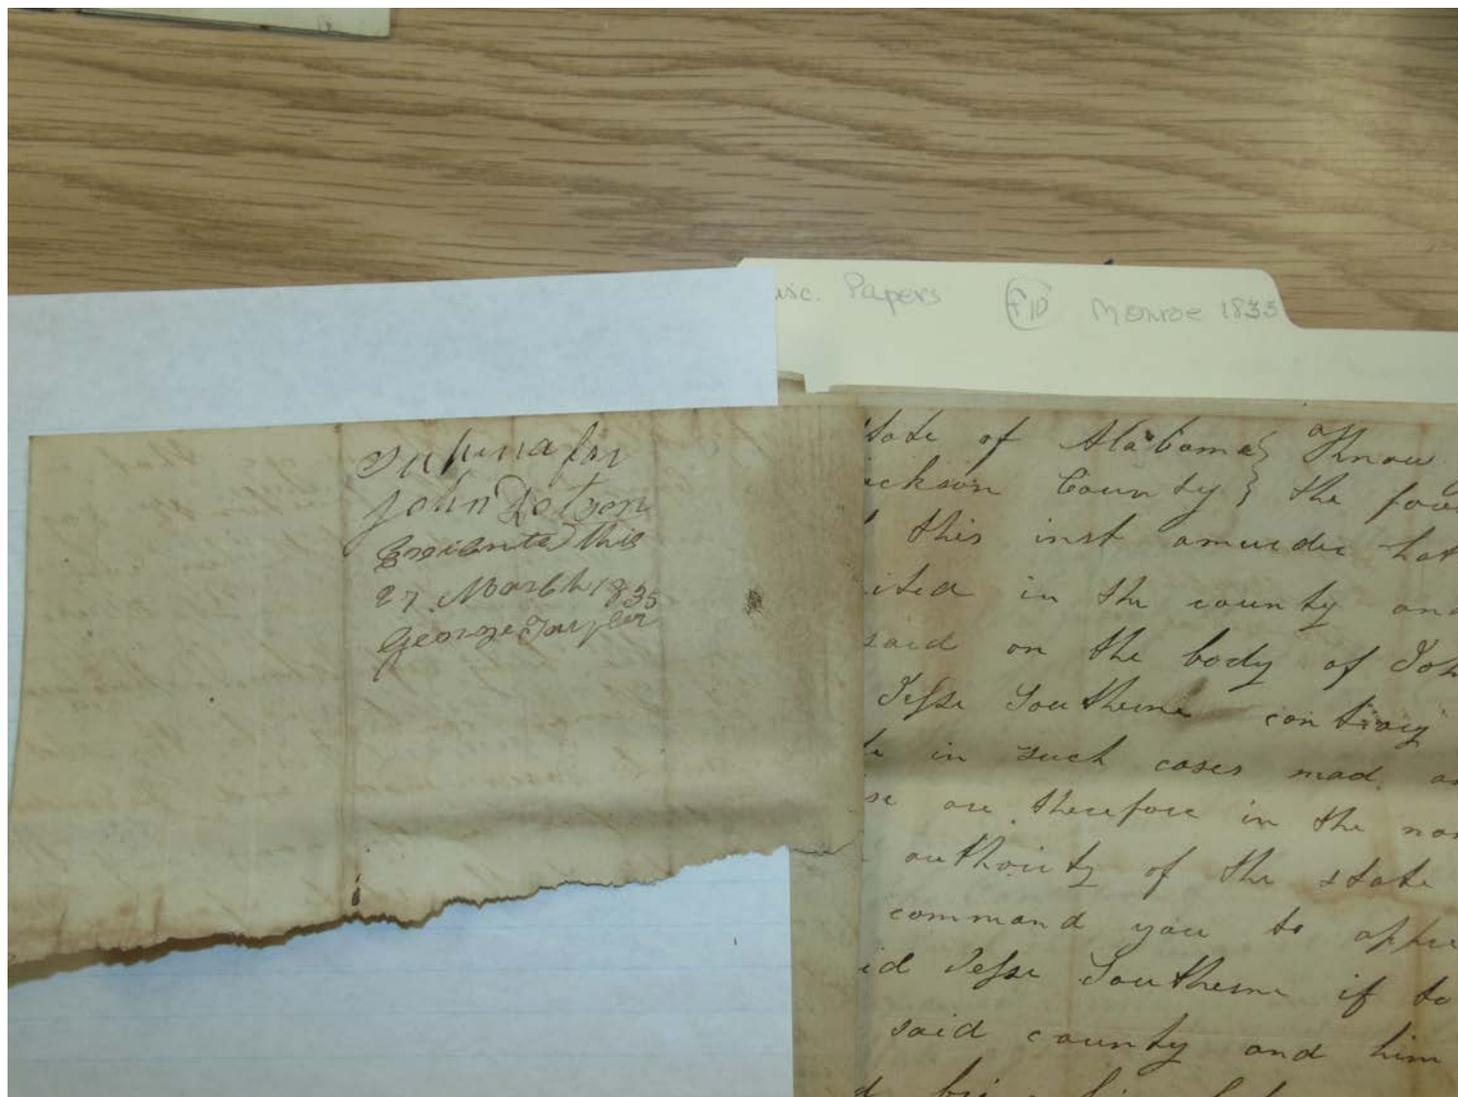 Papers F10 Monroe 1835
John Dotson
this
27 March 1835
George
State of Alabama } Know
ickson County } the
this inst amurder hat
ited in the county and
said on the body of Joh
Jesse Southerne contrary
in such cases mad, an
se are therefore in the na
authoirty of the state
command you to appre
id Jesse Southerne if to
said county and him